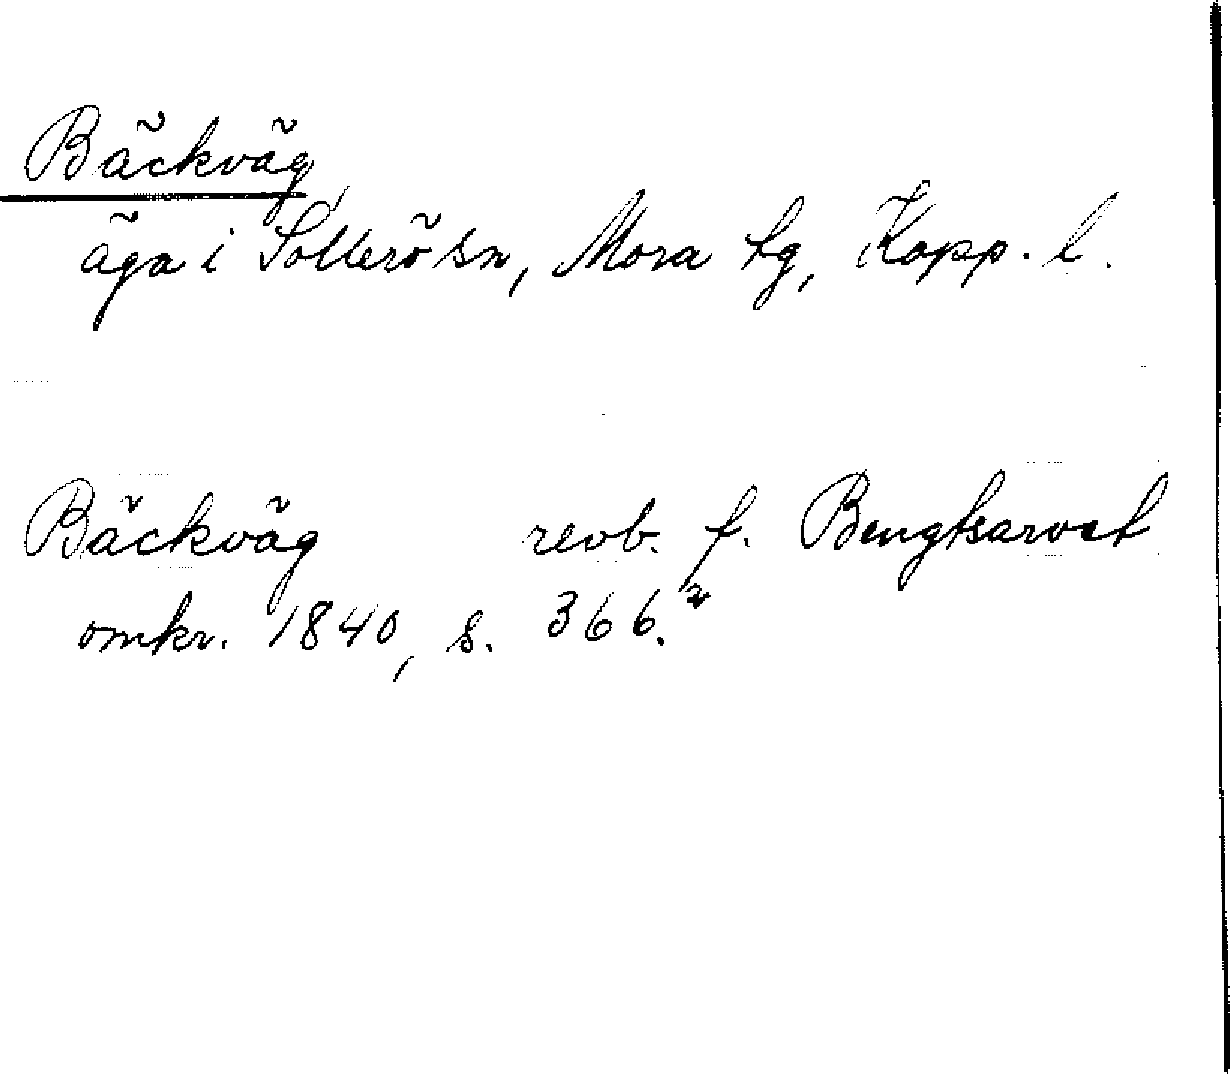 Bäckväg
äga i Sollerö sn, Mora tg, Kopp. l.
Bäckväg revb. f. Bengtsarvet
omkr. 1840, s. 366.